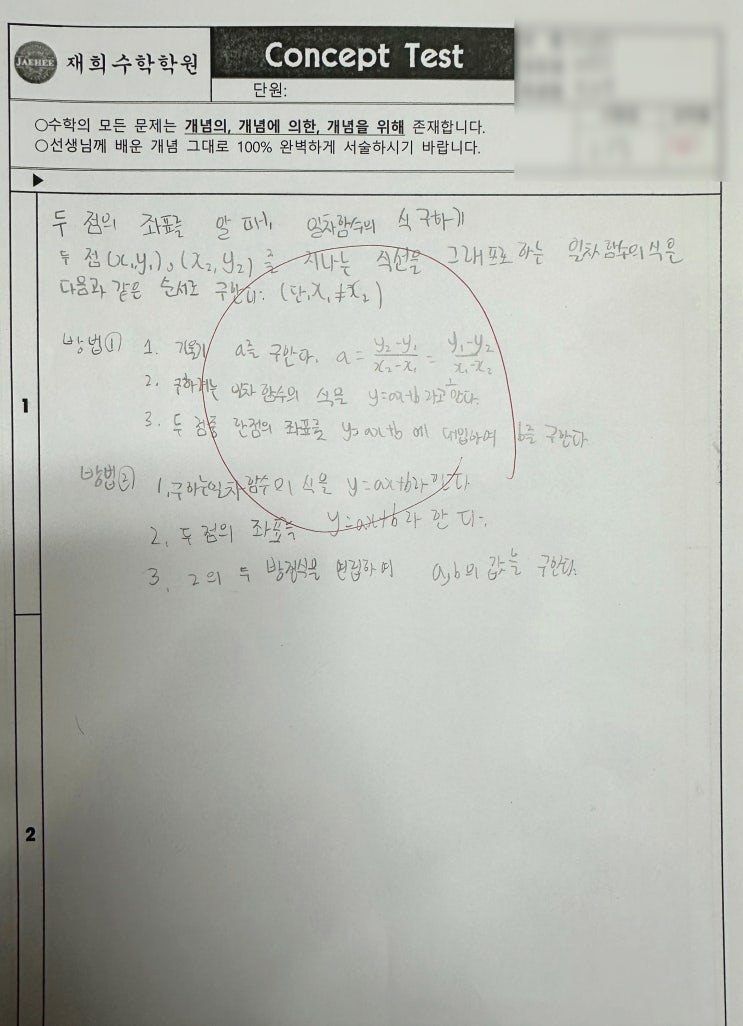 JAEHEE
재희수학학원
Concept Test
단원:
○수학의 모든 문제는 개념의, 개념에 의한, 개념을 위해 존재합니다.
○선생님께 배운 개념 그대로 100% 완벽하게 서술하시기 바랍니다.
▶
1
두 점의 좌표를 알 때, 일차함수의 식 구하기
두 점(x₁,y₁), (x₂,y₂)를 지나는 직선을 그래프로 하는 일차함수의 식은
다음과 같은 순서로 구한다. (단, x₁≠x₂)
방법① 1. 기울기 a를 구한다. a = (y₂-y₁)/(x₂-x₁) = (y₁-y₂)/(x₁-x₂)
2. 구하려는 일차함수의 식을 y=ax+b 라고 한다.
3. 두 점중 한점의 좌표를 y=ax+b 에 대입하여 b를 구한다
방법② 1. 구하는일차함수의 식을 y=ax+b라 한다
2. 두 점의 좌표를 y=ax+b라 한다.
3. 2의 두 방정식을 연립하여 a,b의 값을 구한다.
2